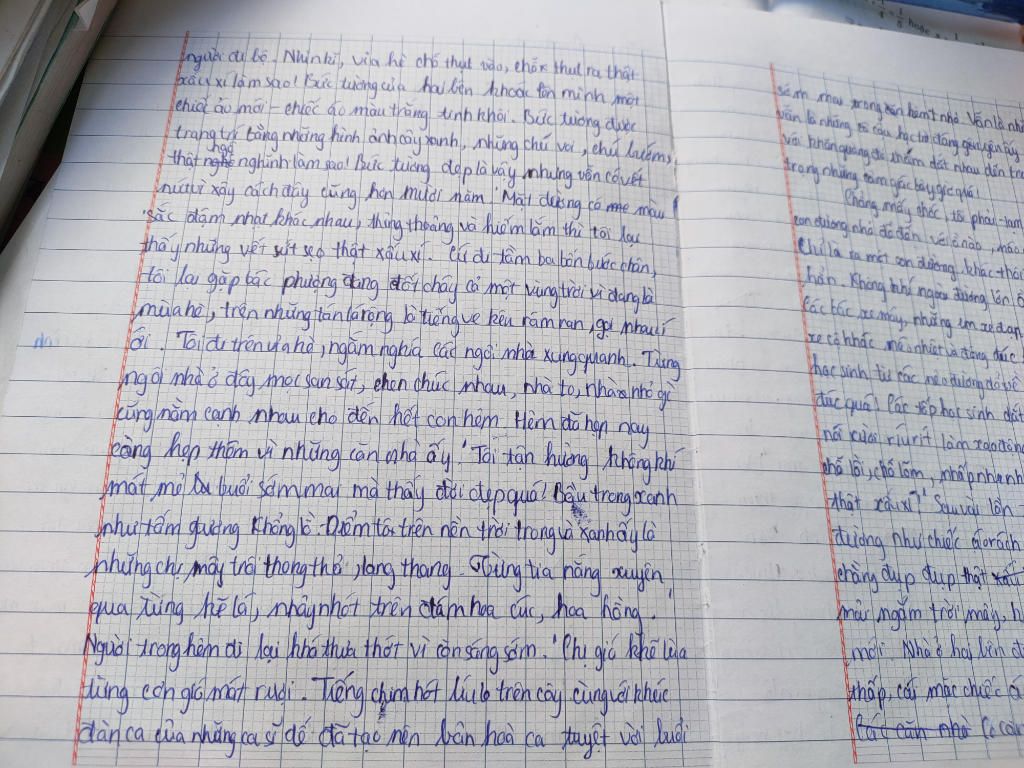 người đi bộ. Nhìn kĩ, vỉa hè chỗ thụt vào, chỗ thụt ra thật
xấu xí làm sao! Bức tường của hai bên khoác lên mình một
chiếc áo mới - chiếc áo màu trắng tinh khôi. Bức tường được
trang trí bằng những hình ảnh cây xanh, những chú voi, chú bướm,
thật ngộ nghĩnh làm sao! Bức tường đẹp là vậy nhưng vẫn có vết
nứt vì xây cách đây cũng hơn mười năm. Mặt đường có màu
sắc đậm nhạt khác nhau, thỉnh thoảng và hiếm lắm thì tôi lại
thấy những vết sứt sẹo thật xấu xí. Cứ đi tầm ba bốn bước chân,
tôi lại gặp bác phượng đang đốt cháy cả một vùng trời vì đang là
mùa hè, trên những tán lá rộng là tiếng ve kêu râm ran, gọi nhau í
ới. Tôi đi trên vỉa hè, ngắm nghía các ngôi nhà xung quanh. Từng
ngôi nhà ở đây mọc san sát, chen chúc nhau, nhà to, nhà nhỏ gì
cũng nằm cạnh nhau cho đến hết con hẻm. Hẻm đã hẹp nay
càng hẹp thêm vì những căn nhà ấy. Tôi tận hưởng không khí
mát mẻ buổi sớm mai mà thấy đời đẹp quá! Bầu trong xanh
như tấm gương khổng lồ. Điểm tô trên nền trời trong và xanh ấy là
những chị mây trôi thong thả, lang thang. Từng tia nắng xuyên
qua từng kẽ lá, nhảy nhót trên đám hoa cúc, hoa hồng.
Người trong hẻm đi lại khá thưa thớt vì còn sáng sớm. Chị gió khẽ lùa
từng cơn gió mát rượi. Tiếng chim hót líu lo trên cây cùng với khúc
đàn ca của những ca sĩ dế đã tạo nên bản hoà ca tuyệt vời buổi
sớm mai trong con hẻm nhỏ. Vẫn là
vẫn là những cô cậu học trò đáng yêu
với khăn quàng đỏ thắm dắt nhau đến
trong những tấm giấc
Chẳng mấy chốc, tôi phải
con đường nhỏ đã đến
là ra một con đường khác
hẳn. Không khí ngoài đường lớn
các bác xe máy, những em xe đạp
học sinh từ các nẻo đường đổ về
quá! Các tốp học sinh dắt
nói cười ríu rít làm
chỗ lồi, chỗ lõm,
thật xấu xí! Sau vài lần
đường như chiếc áo rách
chằng đụp đụp thật
mải ngắm trời mây,
mới. Nhà ở hai bên
thấp, cái mặc chiếc
các căn nhà